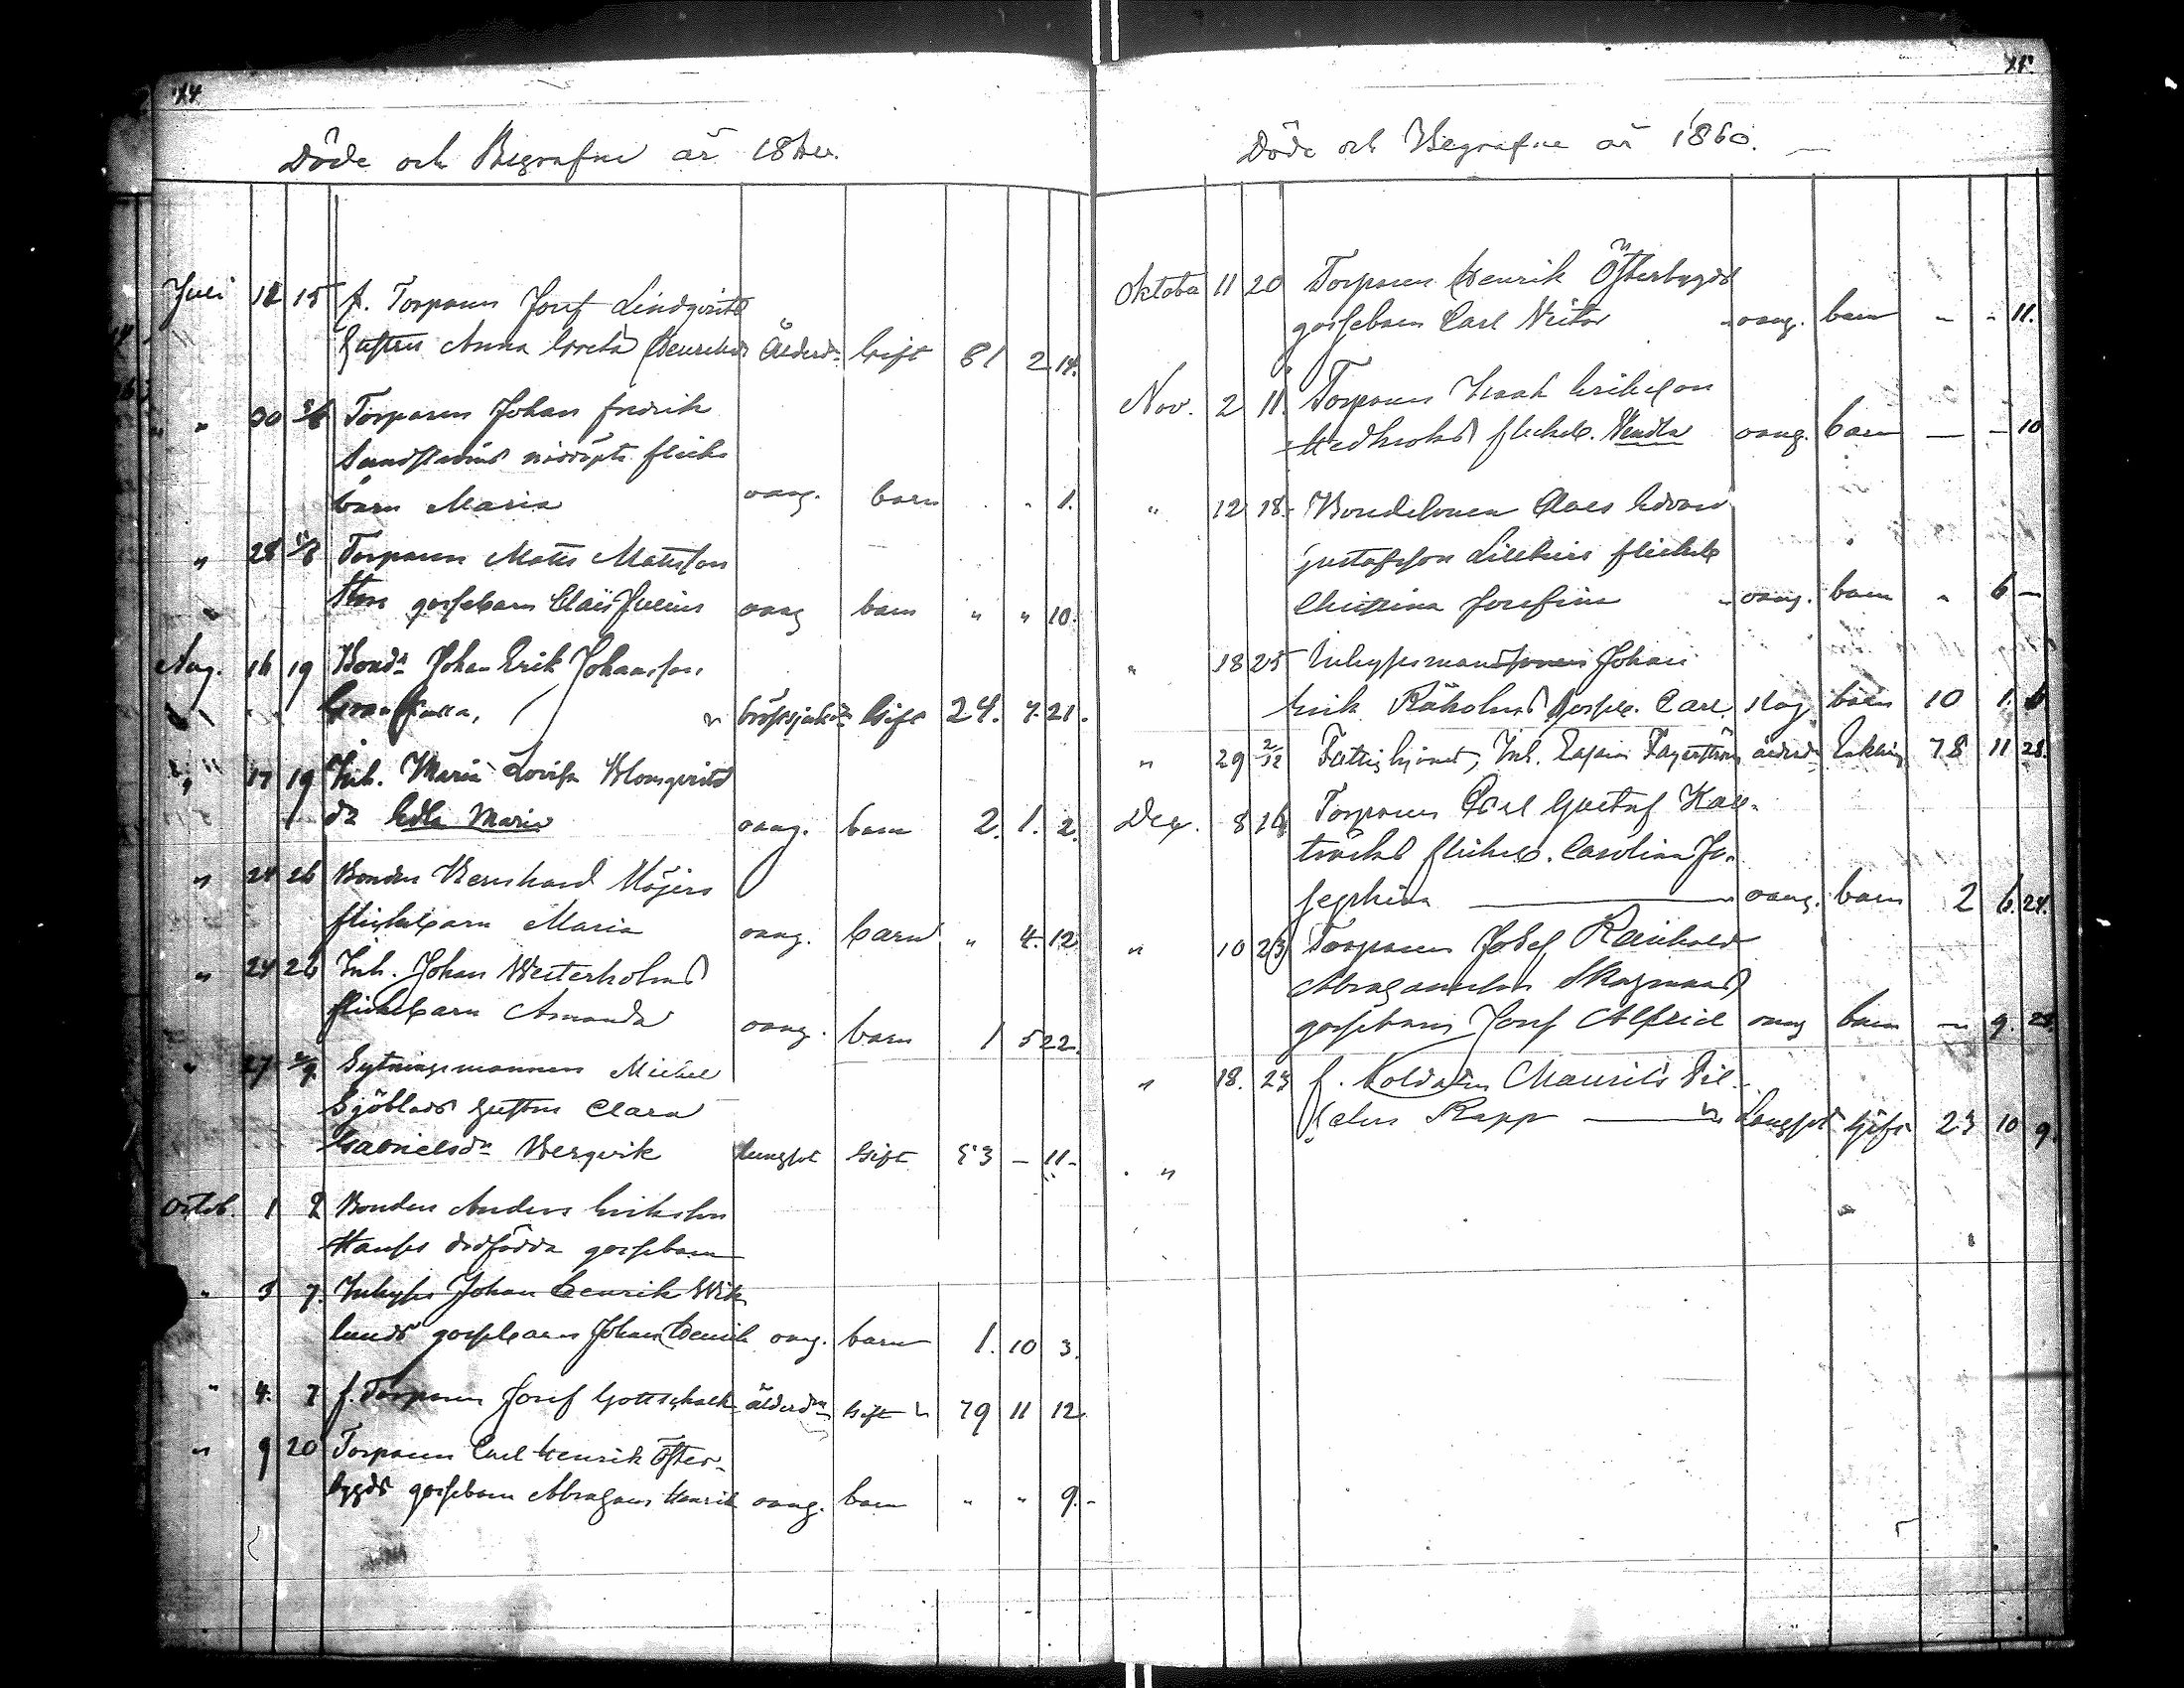 44
Döde och Begrafne år 18
Juli 12 15 f. Torparen Josef Lindqvists
hustru Anna Greta Henriksd Ålderd. Gift 81 2 14.
" 30 Torparen Johan Fredrik
nödöpta flicke
barn Maria oang. barn . . 1.
" 28 Torparen Mats Matsson
gossebarn Claës Julius oang barn " " 10.
Aug. 16 19 Bondn Johan Erik Johansson
Grankulla, bröstsjukd. Gift 24. 7. 21.
" 17 19 Inh. Maria Lovisa Blomqvists
dr Edla Maria oang. barn 2. 1. 2.
" 24 26 Bonden Bernhard Höjers
flickebarn Maria oang. barn " 4. 12
" 24 26 Inh. Johan Westerholms
flickebarn Amanda oang. barn 1 5 22.
" 27 Sytningsmannen Michel
Sjöblads hustru Clara
Gabrielsdr Bergvik lungsot Gift 53 - 11-
Octob. 1 2 Bonden Anders Eriksson
dödfödda gossebarn
" 3 7. Inhyses Johan Henrik Wik
lunds gossebarn Johan Henrik oang. barn 1. 10 3.
" 4. 7 f. Torparen Josef Gottschalk ålderdm Gift 79 11 12.
" 9 20 Torparen Carl Henrik Öster-
bygds gossebarn Abraham Henrik oang. barn " " 9.-
Döde och Begrafne år 1860.
Oktober 11 20 Torparen Henrik Österbygds
gossebarn Carl Victor oang. barn - " 11.
Nov. 2 11. Torparen Isaak Erikson
flickeb. Wendla oang. barn - - 10
" 12 18. Bondesonen Claes Edvard
Gustafsson flickeb
Christina Josefina oang. barn " 6 -
" 18 25 Inhysesman Johan
Erik Råholms gosseb. Carl Slag barn 10 1. 6
" 29 2/12 Fattighjonet, Inh. Fagerström ålderd Enkling 78 11 28.
Dec. 8 16 Torparen Carl Gustaf Kall-
träsks flickeb. Carolina Jo-
sephina oang. barn 2 6. 24.
" 10 23 Torparen Josef Reinhold
Abrahamsson Skogmans
gossebarn Josef Alfred oang barn - 9. 28.
" 18. 23 f. Soldaten Maurits Wil-
helm Rapp Lungsot Gift 23 10 9.
"